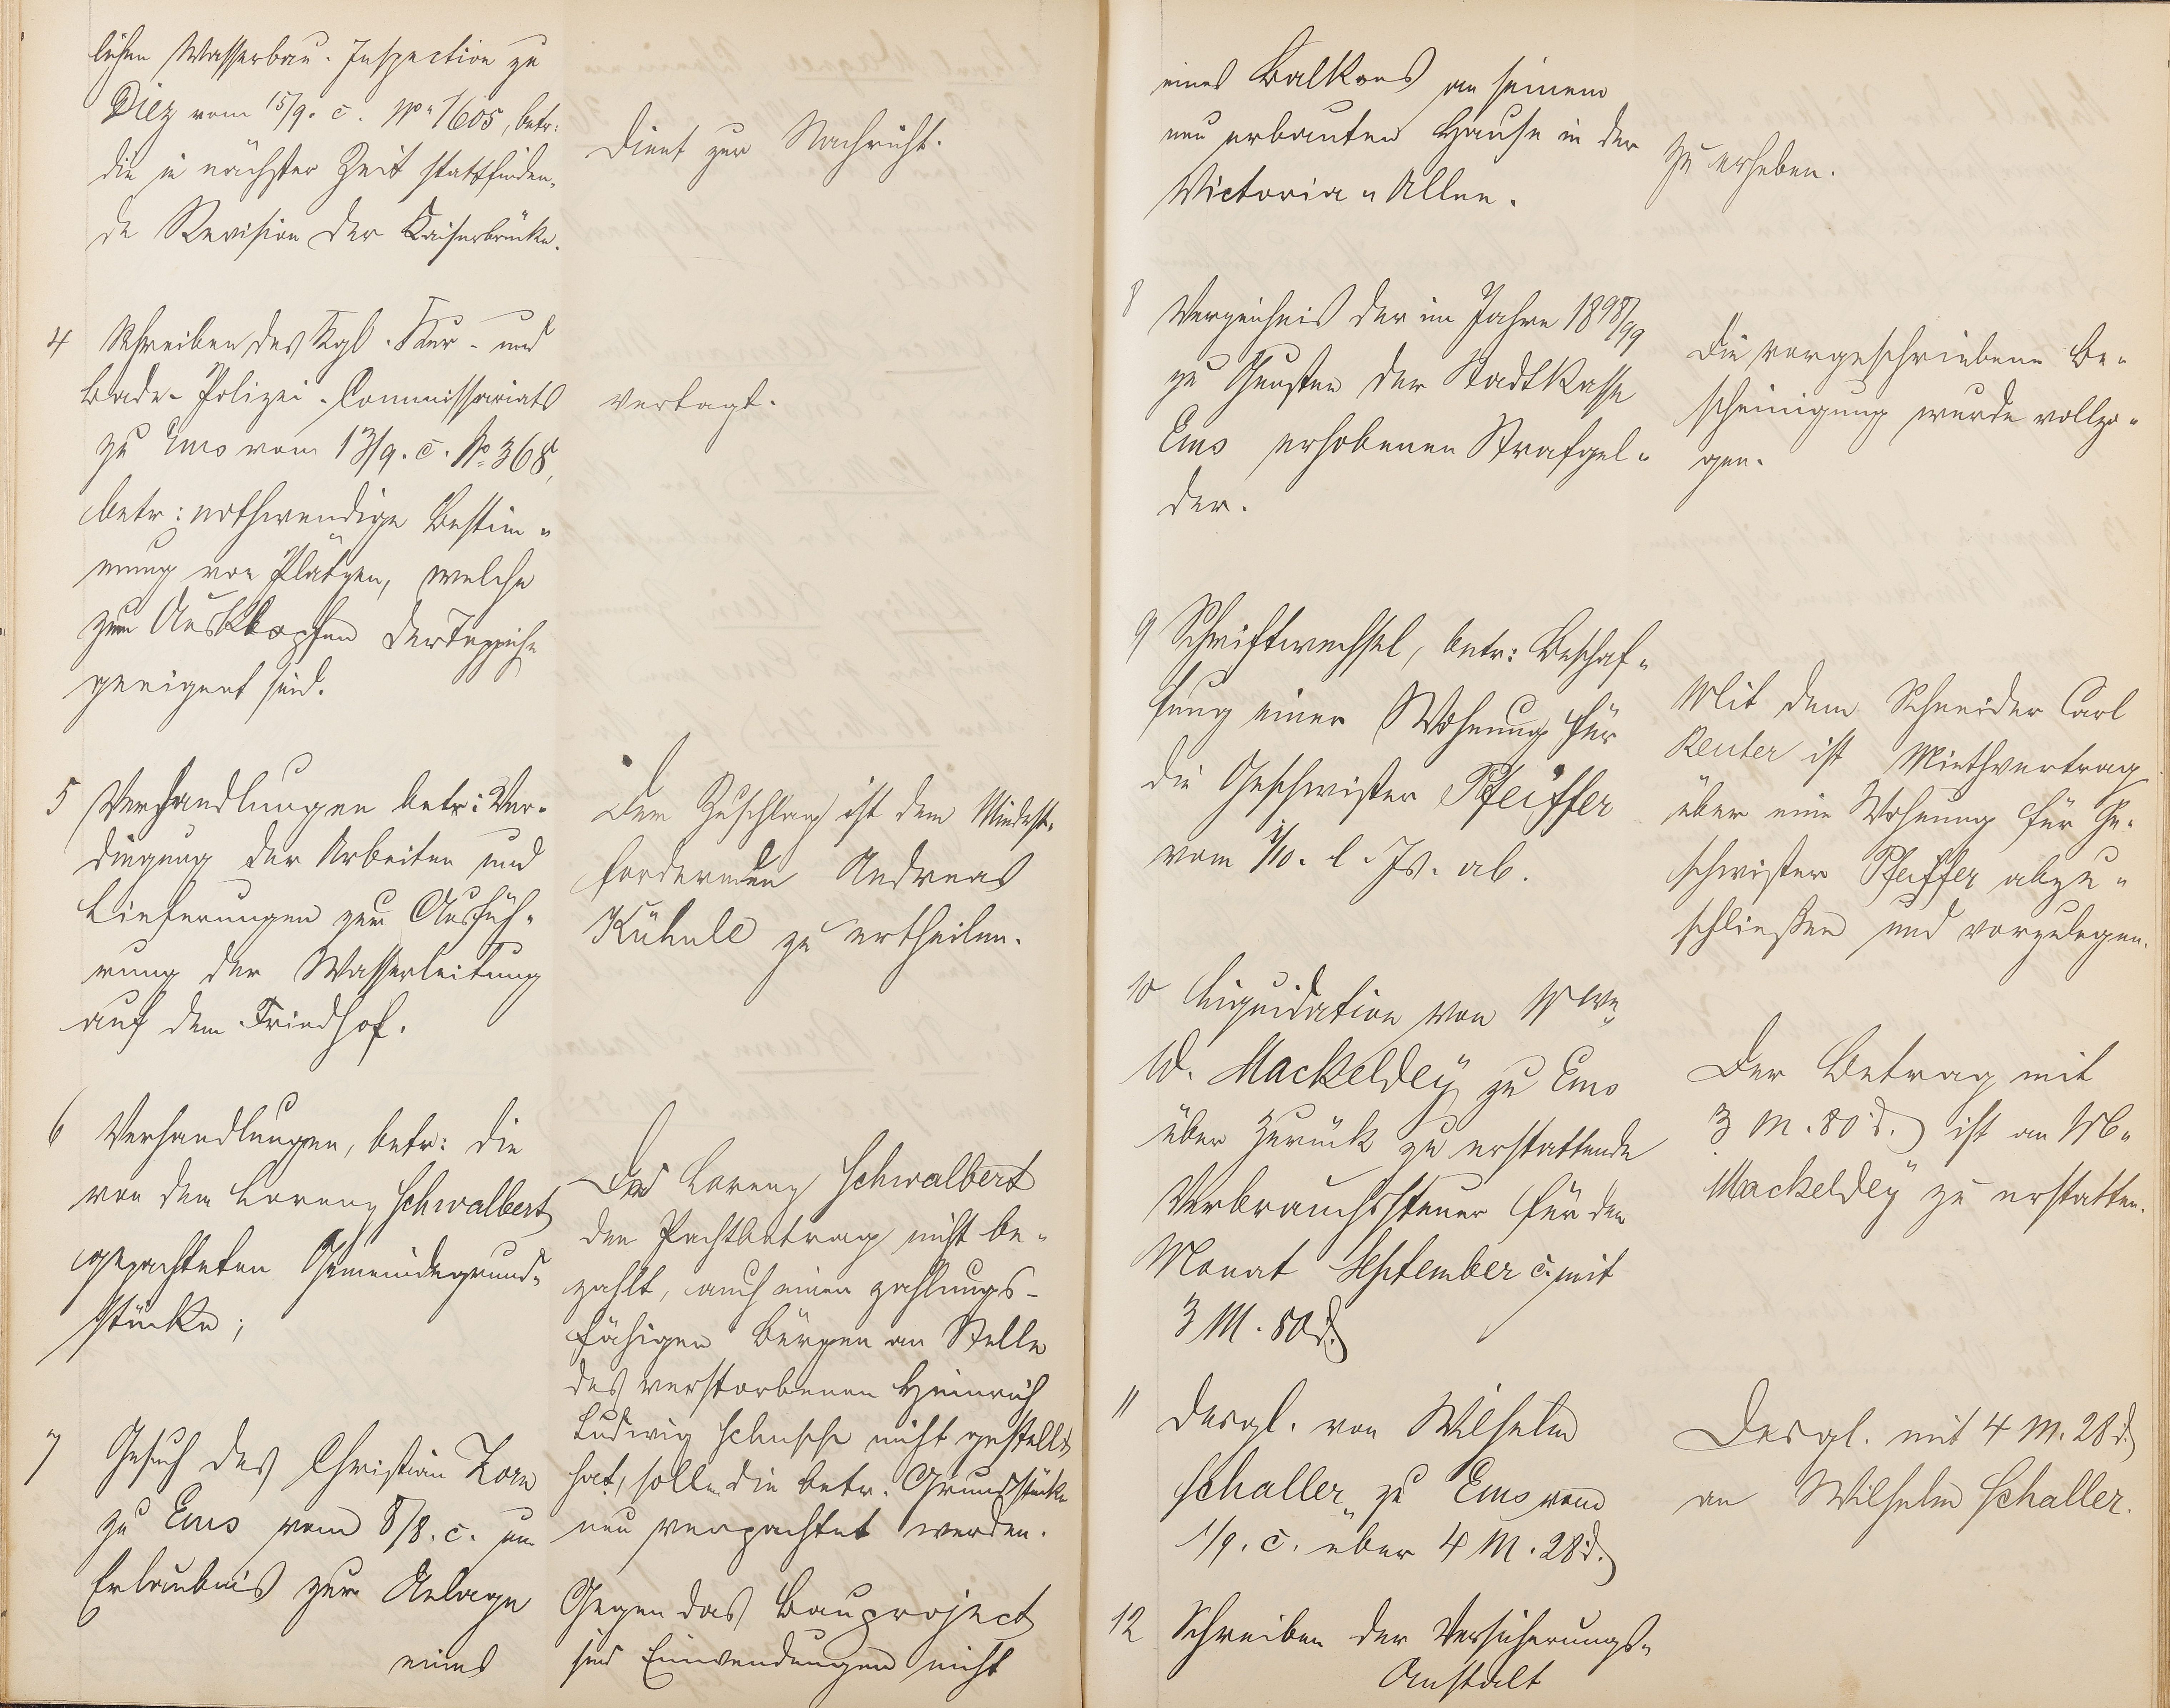 lichen Wasserbau-Inspection zu
Diez vom 15/9. c. No 1605, betr:
die in nächster Zeit stattfinden-
de Revision der Kaiserbrücke.
Dient zur Nachricht.
4 Schreiben des Kgl. Kur- und
Bade-Polizei-Commissariats
zu Ems vom 13/9. c. No 368,
betr: nothwendige Bestim-
mung von Plätzen, welche
zum Ausklopfen der Teppiche
geeignet sind.
Vertagt.
5 Verhandlungen betr: Ver-
dingung der Arbeiten und
Lieferungen zur Ausfüh-
rung der Wasserleitung
auf dem Friedhof.
Der Zuschlag ist dem Mindest-
fordernden Andreas
Kühnle zu ertheilen.
6 Verhandlungen, betr: die
von dem Lorenz Schwalbert
gepachteten Gemeindegrund-
stücke;
Da Lorenz Schwalbert
den Pachtbetrag nicht be-
zahlt, auch einen zahlungs-
fähigen Bürgen an Stelle
des verstorbenen Heinrich
Ludwig nicht gestellt
hat, sollen die betr. Grundstücke
neu verpachtet werden.
7 Gesuch des Christian Zorn
zu Ems vom 8/8. c. um
Erlaubnis zur Anlage
eines
Gegen das Bauproject
sind Einwendungen nicht
eines Balkons an seinem
neu erbauten Hause in der
Victoria-Allee.
zu erheben.
8 Verzeichnis der im Jahre 1898/99
zu Gunsten der Stadtkasse
Ems erhobenen Strafgel-
der.
Die vorgeschriebene Be-
scheinigung wurde vollzo-
gen.
9 Schriftwechsel, betr: Beschaf-
fung einer Wohnung für
die Geschwister Pfeiffer
vom 1/10. l. Js. ab.
Mit dem Schneider Carl
Reuter ist Miethvertrag
über eine Wohnung für Ge-
schwister Pfeiffer abzu-
schließen und vorzulegen.
10 Liquidation von Wwe
W. Mackeldey zu Ems
über zurück zu erstattende
Verbrauchssteuer für den
Monat September c. mit
3 M. 80 d.
Der Betrag mit
3 M. 80 d. ist an W.
Mackeldey zu erstatten.
11 Desgl. von Wilhelm
Schaller zu Ems vom
1/9. c. über 4 M. 28 d.
Desgl. mit 4 M. 28 d.
an Wilhelm Schaller.
12 Schreiben der Versicherungs-
Anstalt